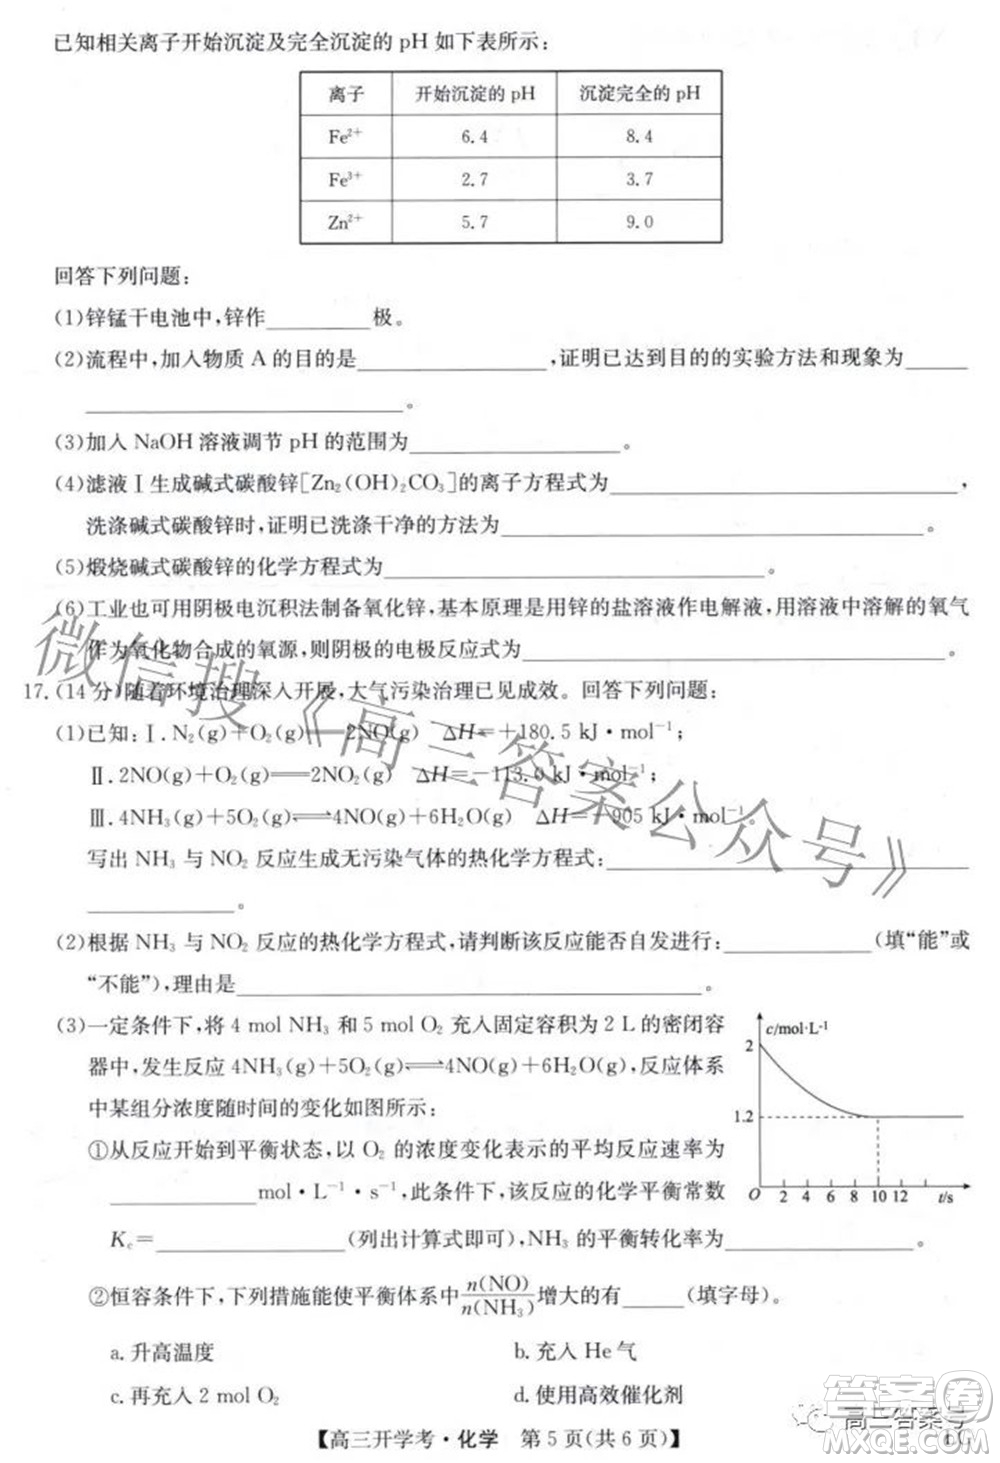 已知相关离子开始沉淀及完全沉淀的 pH 如下表所示:
离子 开始沉淀的 pH 沉淀完全的 pH
Fe²⁺ 6.4 8.4
Fe³⁺ 2.7 3.7
Zn²⁺ 5.7 9.0
回答下列问题:
(1)锌锰干电池中,锌作________极。
(2)流程中,加入物质 A 的目的是________,证明已达到目的的实验方法和现象为____
________。
(3)加入 NaOH 溶液调节 pH 的范围为________。
(4)滤液Ⅰ生成碱式碳酸锌[Zn₂(OH)₂CO₃]的离子方程式为________,
洗涤碱式碳酸锌时,证明已洗涤干净的方法为________。
(5)煅烧碱式碳酸锌的化学方程式为________。
(6)工业也可用阴极电沉积法制备氧化锌,基本原理是用锌的盐溶液作电解液,用溶液中溶解的氧气
作为氧化物合成的氧源,则阴极的电极反应式为________。
17.(14 分)随着环境治理深入开展,大气污染治理已见成效。回答下列问题:
(1)已知:Ⅰ.N₂(g)+O₂(g)══2NO(g) ΔH=+180.5 kJ·mol⁻¹;
Ⅱ.2NO(g)+O₂(g)══2NO₂(g) ΔH=-113.0 kJ·mol⁻¹;
Ⅲ.4NH₃(g)+5O₂(g)⇌4NO(g)+6H₂O(g) ΔH=-905 kJ·mol⁻¹。
写出 NH₃ 与 NO₂ 反应生成无污染气体的热化学方程式:________
________。
(2)根据 NH₃ 与 NO₂ 反应的热化学方程式,请判断该反应能否自发进行:________(填“能”或
“不能”),理由是________。
(3)一定条件下,将 4 mol NH₃ 和 5 mol O₂ 充入固定容积为 2 L 的密闭容
器中,发生反应 4NH₃(g)+5O₂(g)⇌4NO(g)+6H₂O(g),反应体系
中某组分浓度随时间的变化如图所示:
①从反应开始到平衡状态,以 O₂ 的浓度变化表示的平均反应速率为
________mol·L⁻¹·s⁻¹,此条件下,该反应的化学平衡常数
K_c=________(列出计算式即可),NH₃ 的平衡转化率为________。
c/mol·L⁻¹
2
1.2
O 2 4 6 8 10 12 t/s
②恒容条件下,下列措施能使平衡体系中n(NO)/n(NH₃)增大的有____(填字母)。
a.升高温度 b.充入 He 气
c.再充入 2 mol O₂ d.使用高效催化剂
【高三开学考·化学 第 5 页(共 6 页)】
微信搜《高三答案公众号》
高三答案号
答案圈
MXQE.COM